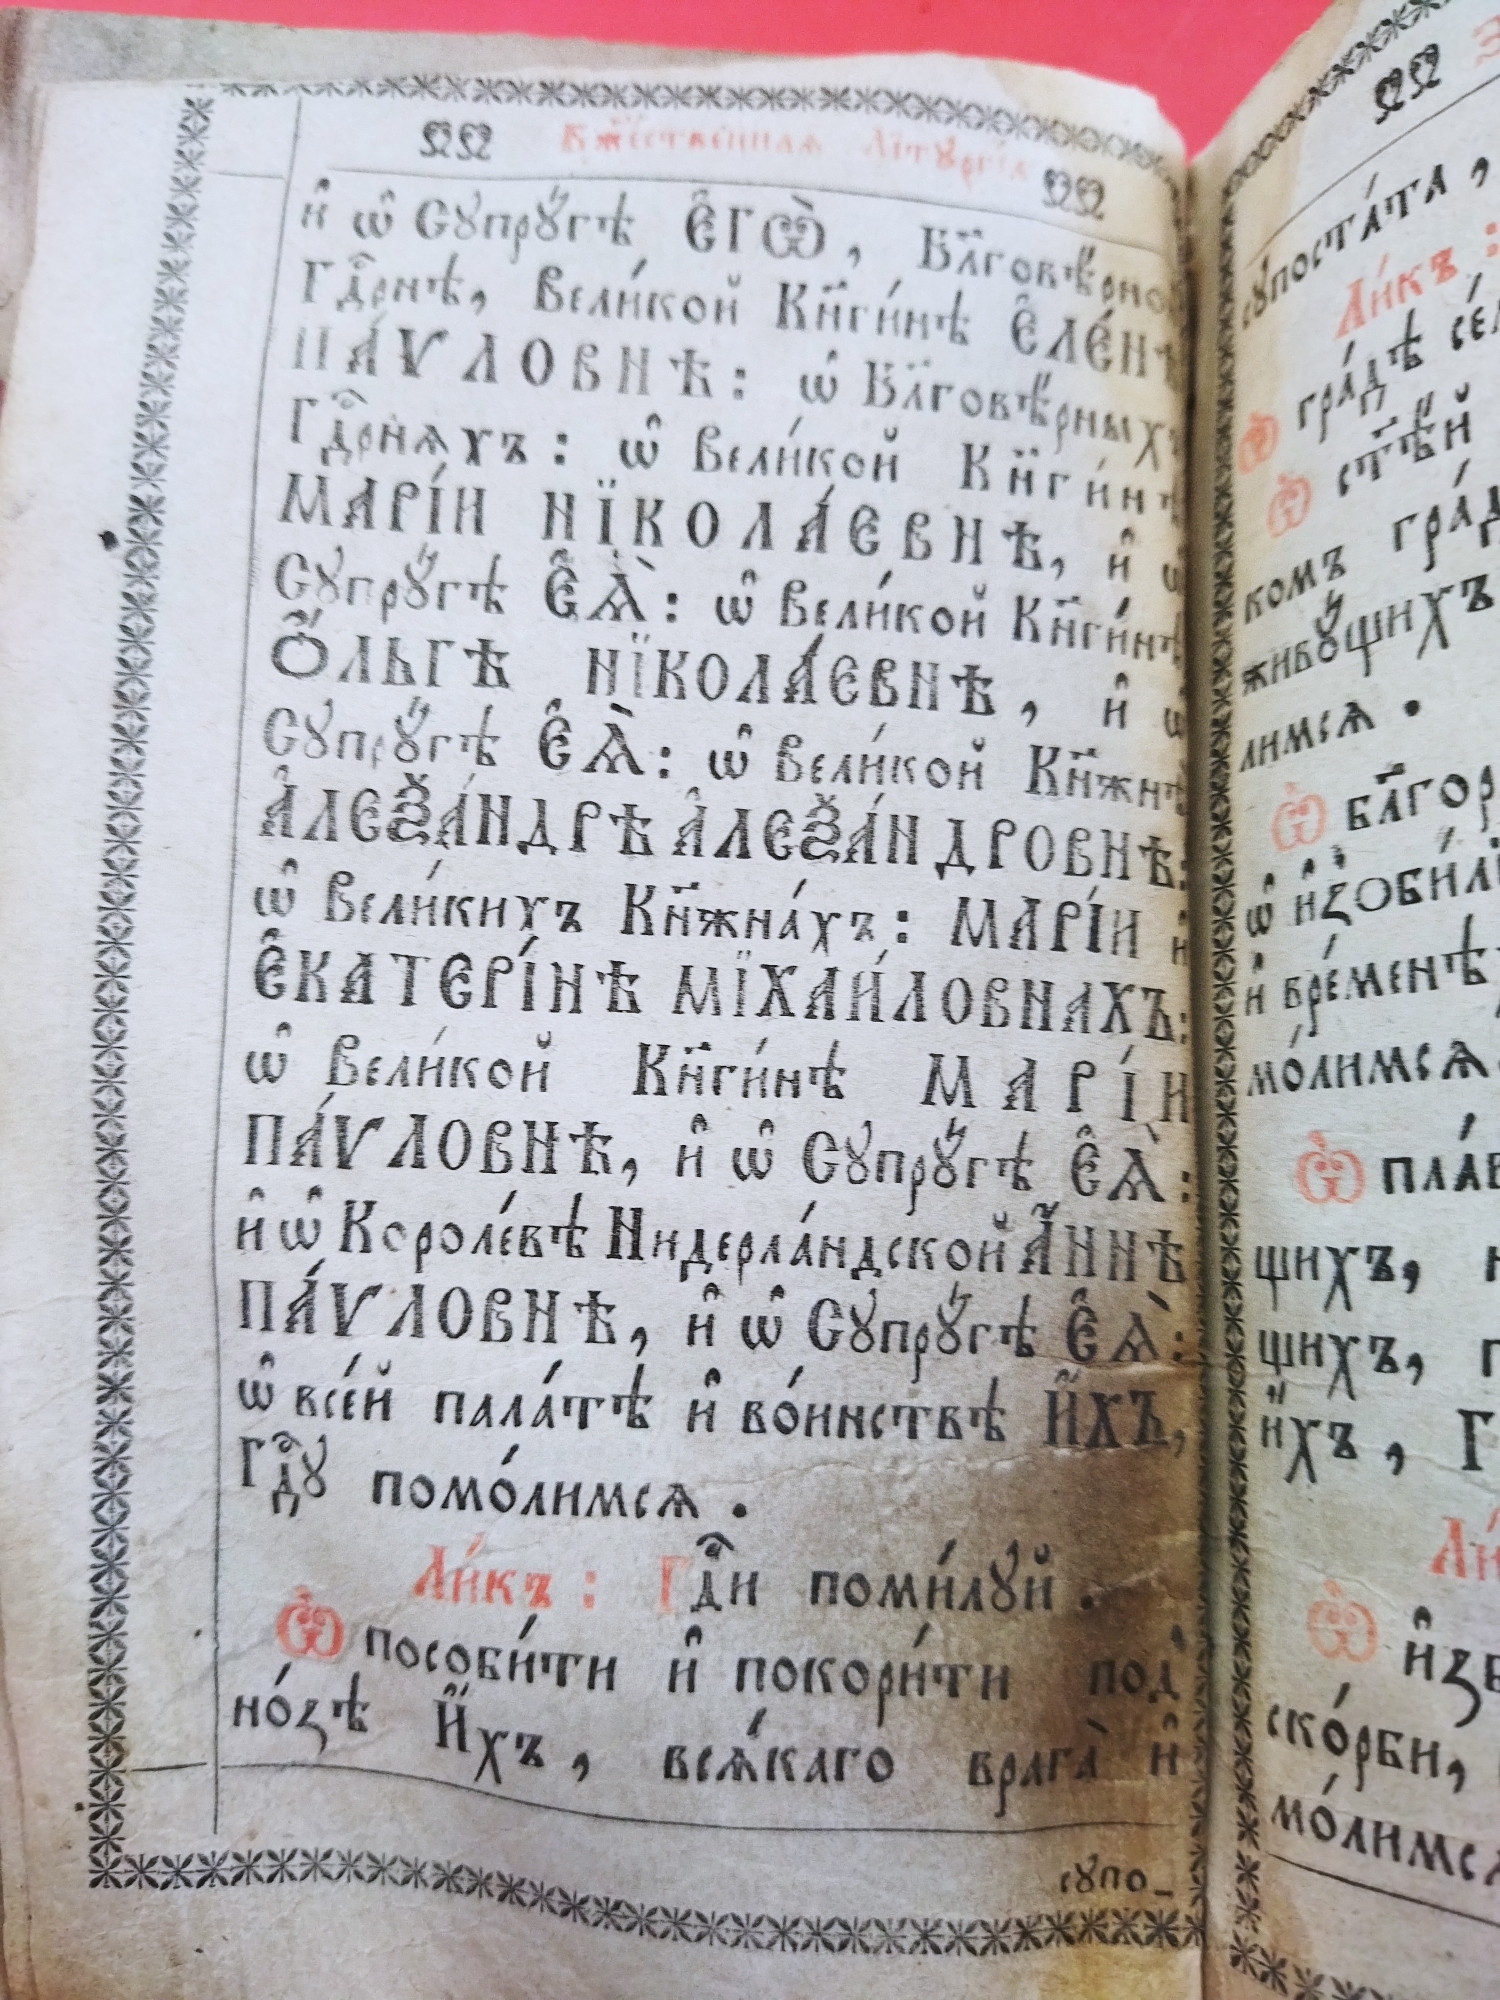 Бжⷭ҇твенная Літꙋргі́а
и҆ ѡ҆ Сꙋпрꙋ́гѣ Є҆ГѠ̀, Бл҃говѣ́рно
Гдⷭ҇рнѣ, Вели́кой Кн҃ги́нѣ Є҆ЛЕ́НѢ
ПА́ѴЛОВНѢ: ѡ҆ Бл҃говѣ́рныхъ
Гдⷭ҇рняхъ: ѡ҆ Вели́кой Кн҃ги́нѣ
МАРІ́И НЇКОЛА́ЕВНѢ, и҆ ѡ҆
Сꙋпрꙋ́гѣ Є҆Ѧ̀: ѡ҆ Вели́кой Кн҃ги́нѣ
Ѻ҆́ЛЬГѢ НЇКОЛА́ЕВНѢ, и҆ ѡ҆
Сꙋпрꙋ́гѣ Є҆Ѧ̀: ѡ҆ Вели́кой Кн҃жнѣ
А҆ЛЕѮА́НДРѢ А҆ЛЕѮА́НДРОВНѢ:
ѡ҆ Вели́кихъ Кн҃жна́хъ: МАРІ́И и҆
Є҆КАТЕРІ́НѢ МЇХАИ́ЛОВНАХЪ:
ѡ҆ Вели́кой Кн҃ги́нѣ МАРІ́И
ПА́ѴЛОВНѢ, и҆ ѡ҆ Сꙋпрꙋ́гѣ Є҆Ѧ̀:
и҆ ѡ҆ Короле́вѣ Нидерла́ндской А҆́ННѢ
ПА́ѴЛОВНѢ, и҆ ѡ҆ Сꙋпрꙋ́гѣ Є҆Ѧ̀:
ѡ҆ все́й пала́тѣ и҆ во́инствѣ И҆́ХЪ,
Гдⷭ҇ꙋ помо́лимсѧ.
Ли́къ: Гдⷭ҇и поми́лꙋй.
Ѽ пособи́ти и҆ покори́ти под̾
но́зѣ И҆́хъ, всѧ́каго врага̀ и҆
сꙋпо-
сꙋпоста́та,
Ли́къ:
Ѽ гра́дѣ
Ѽ ст҃ѣ́й
комъ
живꙋ́щихъ
лимсѧ.
Ѽ
ѡ҆
и҆ бре́менѣ
мо́лимсѧ
Ѽ
щихъ,
щихъ,
и҆́хъ,
Ѽ
ско́рби,
мо́лимсѧ